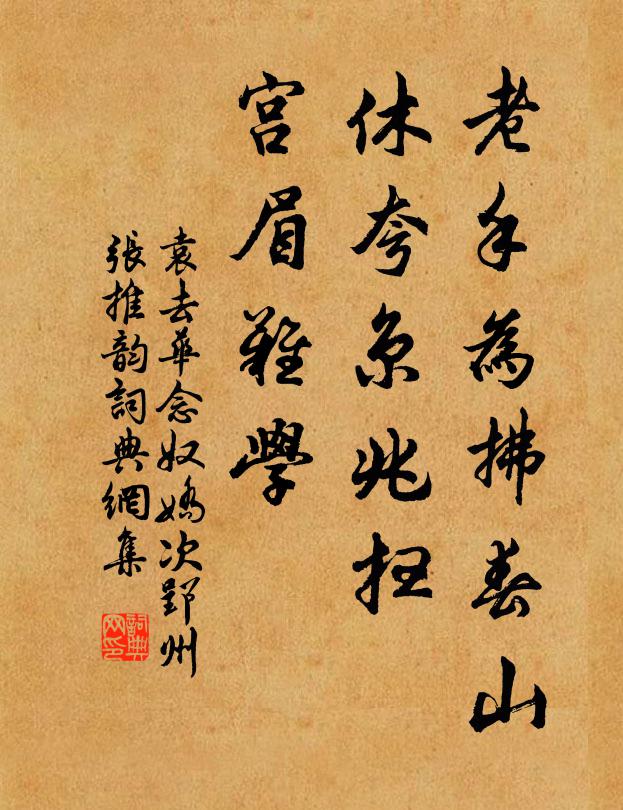 老手為拂春山
休夸京兆抂
宫眉難學
袁去華念奴嬌次郢州
張推韵詞典網集
詞典網印